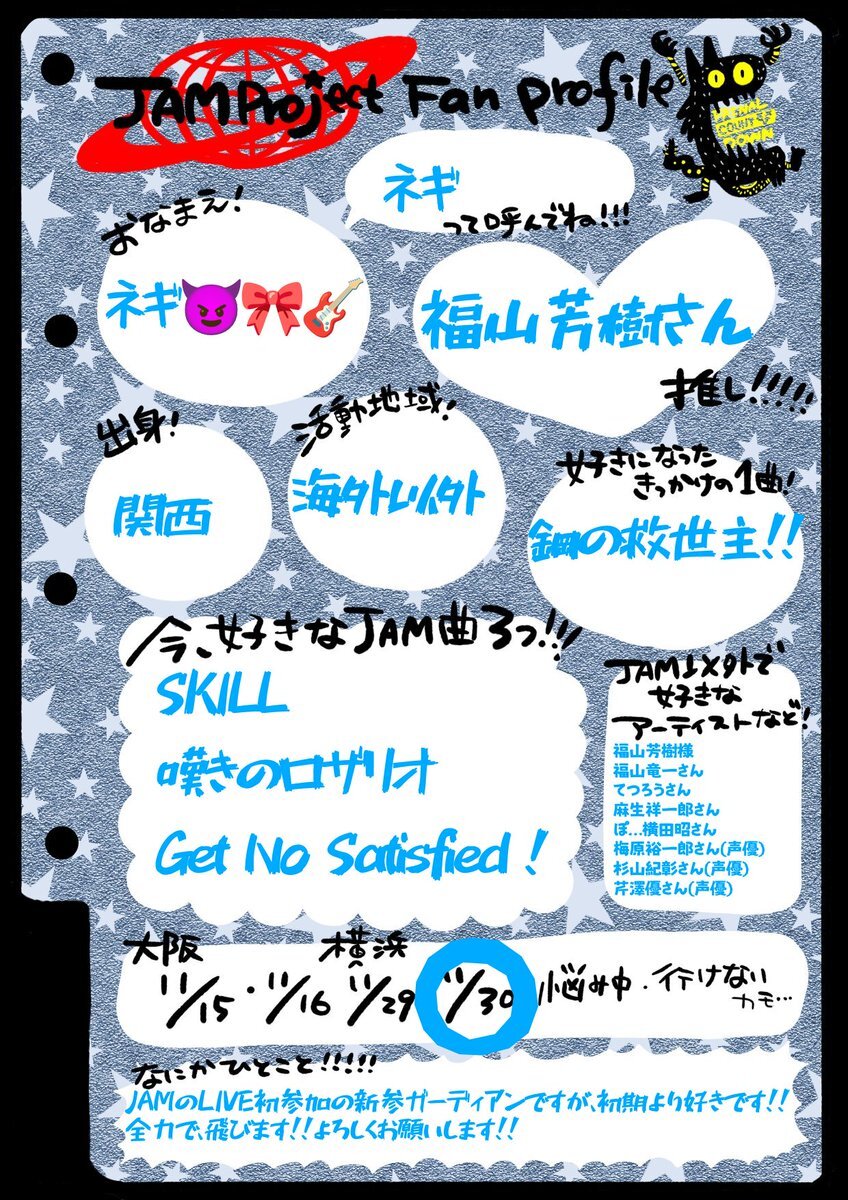 JAM Project Fan profile
FINAL
COUNT
DOWN
ネギ
って呼んでね!!!
おなまえ!
ネギ😈🎀🎸
福山芳樹さん
推し!!!!!
出身!
関西
活動地域!
海外以外
好きになった
きっかけの1曲!
鋼の救世主!!
今、好きなJAM曲3つ!!!
SKILL
嘆きのロザリオ
Get No Satisfied!
JAM以外で
好きな
アーティストなど!
福山芳樹様
福山竜一さん
てつろうさん
麻生祥一郎さん
ぽ…横田昭さん
梅原裕一郎さん(声優)
杉山紀彰さん(声優)
芹澤優さん(声優)
大阪 横浜
11/15・11/16 11/29 11/30 悩み中・行けない
カモ…
なにかひとこと!!!!!
JAMのLIVE初参加の新参ガーディアンですが、初期より好きです!!
全力で、飛びます!!よろしくお願いします!!